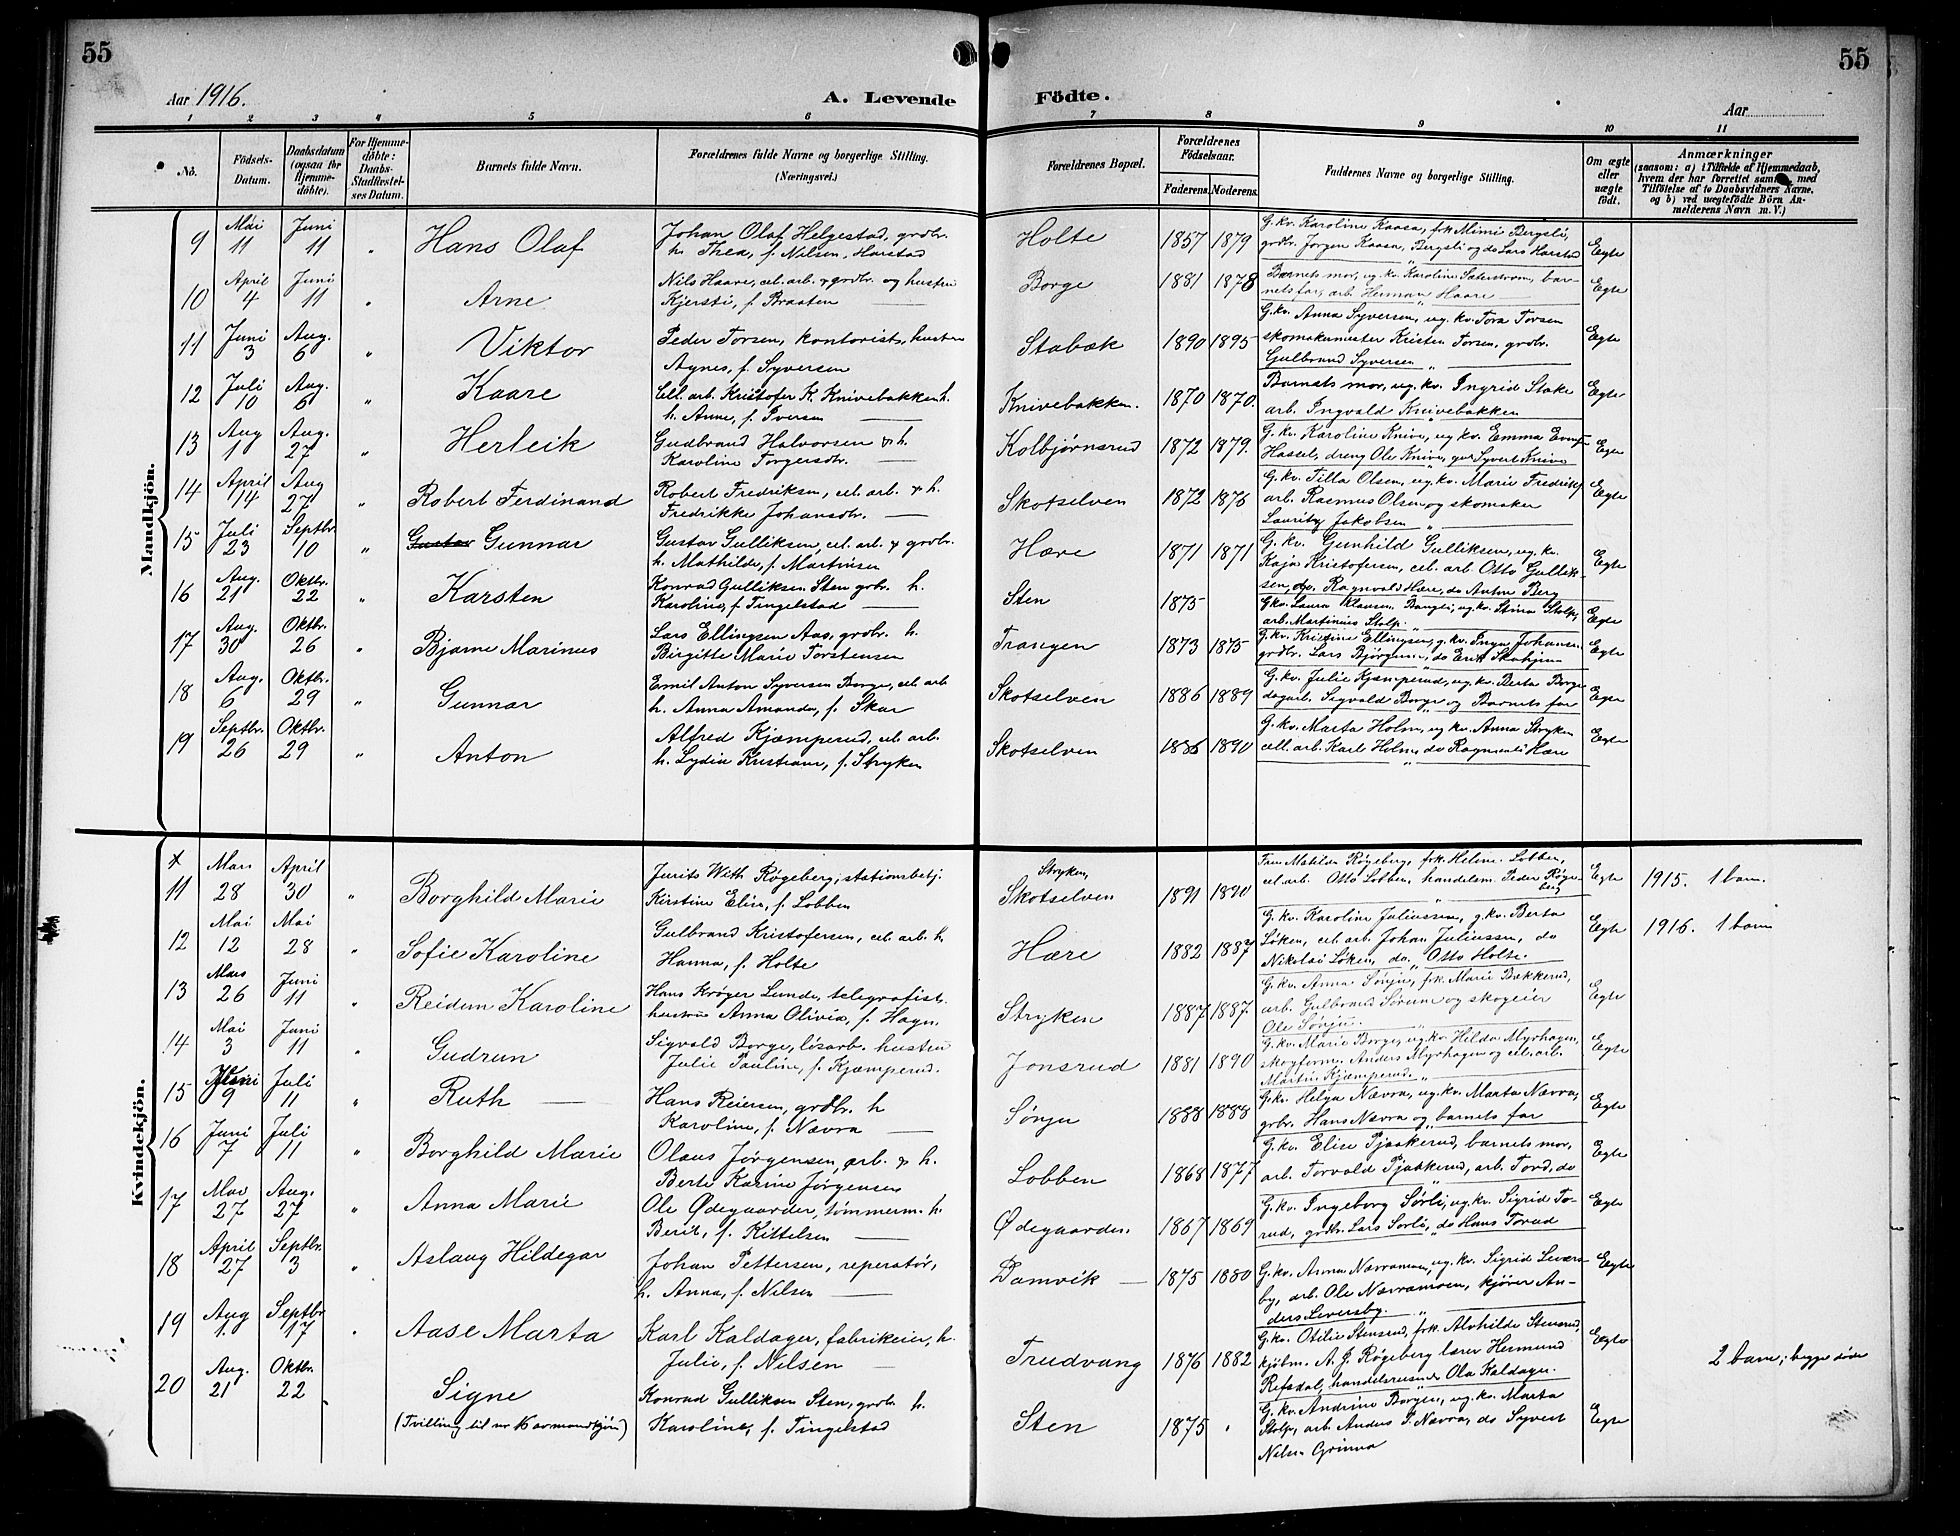 55
55
Aar 1916.
A. Levende
Födte.
Aar
1 2 3 4 5 6 7 8 9 10 11
No.
Födsels-Datum.
Daabsdatum (ogsaa for Hjemmedöbte).
For Hjemmedöbte: Daabs-Stadfæstelses Datum.
Barnets fulde Navn.
Forældrenes fulde Navne og borgerlige Stilling. (Næringsvei.)
Forældrenes Bopæl.
Forældrenes Födselsaar.
Faderens. Moderens.
Faddernes Navne og borgerlige Stilling.
Om ægte eller uægte födt.
Anmærkninger
(saasom: a) i Tilfælde af Hjemmedaab,
hvem der har forrettet samme, med
Tilföielse af to Daabsvidners Navne.
og b) ved uægtefödte Börn An-
melderens Navn m. V.)
Mandkjön.
9 Mai 11 Juni 11 " Hans Olaf
Johan Olaf Helgestad, grdbr.
h. Thea, f. Nilsen, Harstad
Holte 1857 1879
G. kv. Karoline Kaasa, frk Mimi Bergsli,
grdbr. Jørgen Kaasa, Bergsli og do Lars Harstad
Egte
10 April 4 Juni 11 " Arne
Nils Haare, cel. arb. & grdbr. og hustru
Kjersti, f. Braaten
Borge 1881 1878
Barnets mor, ug. kv. Karoline Sæterstrøm, bar-
nets far, arb. Herman Haare
Egte
11 Juni 3 Aug. 6 " Viktor
Peder Torsen, kontorist, hustru
Agnes, f. Syversen
Stabæk 1890 1895
G. kv. Anna Syversen, ug. kv. Tora Torsen
skomakermester Kristen Torsen, grdbr.
Gulbrand Syversen
Egte
12 Juli 10 Aug. 6 " Kaare
Cell. arb. Kristofer K. Knivebakken h.
h. Anne, f. Iversen
Knivebakken. 1870 1870.
Barnets mor, ug. kv. Ingrid Stake
arb. Ingvald Knivebakken
Egte
13 Aug 1 Aug. 27 " Herleik
Gudbrand Halvorsen & h.
Karoline Torgersdtr.
Kolbjørnsrud 1872 1879.
G. kv. Karoline Knive, ug kv. Emma
Hassel, dreng Ole Knive, Syvert Knive
Egte
14 April 14 Aug 27 " Robert Ferdinand
Robert Fredriksen, cel. arb. & h.
Fredrikke Johansdtr.
Skotselven 1872 1876
G. kv. Tilla Olsen, ug. kv. Marie Fredriks
arb. Rasmus Olsen og skomaker
Lauritz Jakobsen
Egte
15 Juli 23 Septbr. 10 " Gustav Gunnar
Gustav Gulliksen, cel. arb. & grdbr.
h. Mathilde, f. Martinsen
Hære 1871 1871
G. kv. Gunhild Gulliksen, ug. kv.
Kaja Kristofersen, cel. arb. Otto Gullik-
sen, do. Ragnvald Hære, do Anton Berg
Egte
16 Aug. 21 Oktbr. 22 " Karsten
Konrad Gulliksen Sten grbr. h.
Karoline, f. Tingelstad
Sten 1875
G. kv. Laura Klausen ug. kv. Stina Stolp,
arb. Martinius Stolp.
Egte
17 Aug. 30 Oktbr. 26 " Bjarne Marinus
Lars Ellingsen Aas, grdbr. h.
Birgitte Marie Torstensen
Trangen 1873 1875
G. kv. Kristine Ellingsen, g. kv. Inga Johansen
grdbr. Lars Bjørgum, do Erik
Egte
18 Aug. 6 Oktbr. 29 " Gunnar
Emil Anton Syversen Borge, cel. arb
h. Anna Amanda, f. Skar
Skotselven 1886 1889
G. kv. Julie Kjæmperud, ug. kv. Berta Borge
dagarb. Sigvald Borge og Barnets far
Egte
19 Septbr. 26 Oktbr. 29 " Anton
Alfred Kjæmperud, cel. arb.
h. Lydia Kristiane, f. Stryken
Skotselven 1886 1890
G. kv. Marta Holm, ug kv. Anna Stryken
cell. arb. Karl Holm, do Ragnvald Hære
Egte
Kvindekjön.
x
11 Mars 28 April 30 " Borghild Marie
Jurits With Røgeberg, stationsbetj.
Kirstine Elise, f. Lobben
Stryken,
Skotselven 1891 1890
Fru Matilda Røgeberg, frk. Heline Lobben,
cel. arb. Otto Lobben, handelsm. Peder Røge-
berg
Egte 1915. 1 barn.
12 Mai 12 Mai 28 " Sofie Karoline
Gulbrand Kristofersen, cel. arb. h.
Hanna, f. Holte
Hære 1882 1887
G. kv. Karoline Juliussen, g. kv. Berta
Løken, cel. arb. Johan Juliussen, do
Nikolai Løken, do. Otto Holte.
Egte 1916. 1 barn
13 Mars 26 Juni 11 " Reidun Karoline
Hans Krøger Lunde, telegrafist.
hustru Anna Olivia, f. Hagn.
Stryken 1887 1887
G. kv. Anna Sønju, frk. Marie Bækkerud,
arb. Gulbrand Sørum og skogeier
Ole Sønju.
Egte
14 Mai 3 Juni 11 " Gudrun
Sigvald Borge, løsarb. hustru
Julie Pauline, f. Kjæmperud.
Jonsrud 1881 1890
G. kv. Marie Borge, ug kv Hilda Myrhagen,
skogform. Anders Myrhagen og cel. arb.
Martin Kjæmperud.
Egte
15 Juni 9 Juli 11 " Ruth
Hans Reiersen, grdbr. h
Karoline, f. Nævra
Sønju 1888 1888
G. kv. Helga Nævra, ug. kv. Marta Nævra,
grbr. Hans Nævra og barnets far
Egte
16 Juni 7 Juli 11 " Borghild Marie
Olaus Jørgensen, arb. & h.
Berte Karine Jørgensen
Lobben 1868 1877
G. kv. Elise Tjaskerud, barnets mor,
arb. Torvald Tjaskerud, arb. Tord, do
Egte
17 Mai 27 Aug. 27 " Anna Marie
Ole Ødegaarden, tømmerm. h
Berit, f. Kittelsen
Ødegaarden. 1867 1869
G. kv. Ingeborg Sørli, ug. kv. Sigrid To-
rud, grdbr. Lars Sørli, do Hans Torud
Egte
18 April 27 Septbr. 3 " Aslaug Hildegar
Johan Pettersen, reperatør,
h. Anna, f. Nilsen
Damvik 1875 1880
G. kv. Anna Nævramoen, ug. kv. Sigrid Levers-
by, arb. Ole Nævramoen, kjører An-
ders Leversby.
Egte
19 Aug 1. Septbr 17 " Aase Marta
Karl Kaldager, fabrikeier, h.
Julie, f. Nilsen
Trudvang 1876 1882
G. kv. Otilie Stensrud, frk. Alvhilde Stensrud,
kjøbm. A. J. Røgeberg lærer Hermund
Refsdal, handelsreisende Ola Kaldager.
Egte
2 barn; begge døde
20 Aug. 21 Oktbr. 22 Signe
(Tvilling til nr 16 av mandkjøn)
Konrad Gulliksen Sten, grdbr. h.
Karoline, f. Tingelstad
Sten 1875 "
G. kv. Andrine Borgen, ug. kv. Marta
Stolp, arb. Anders P. Nævra, do Syvert
Nilsen Grinna
Egte